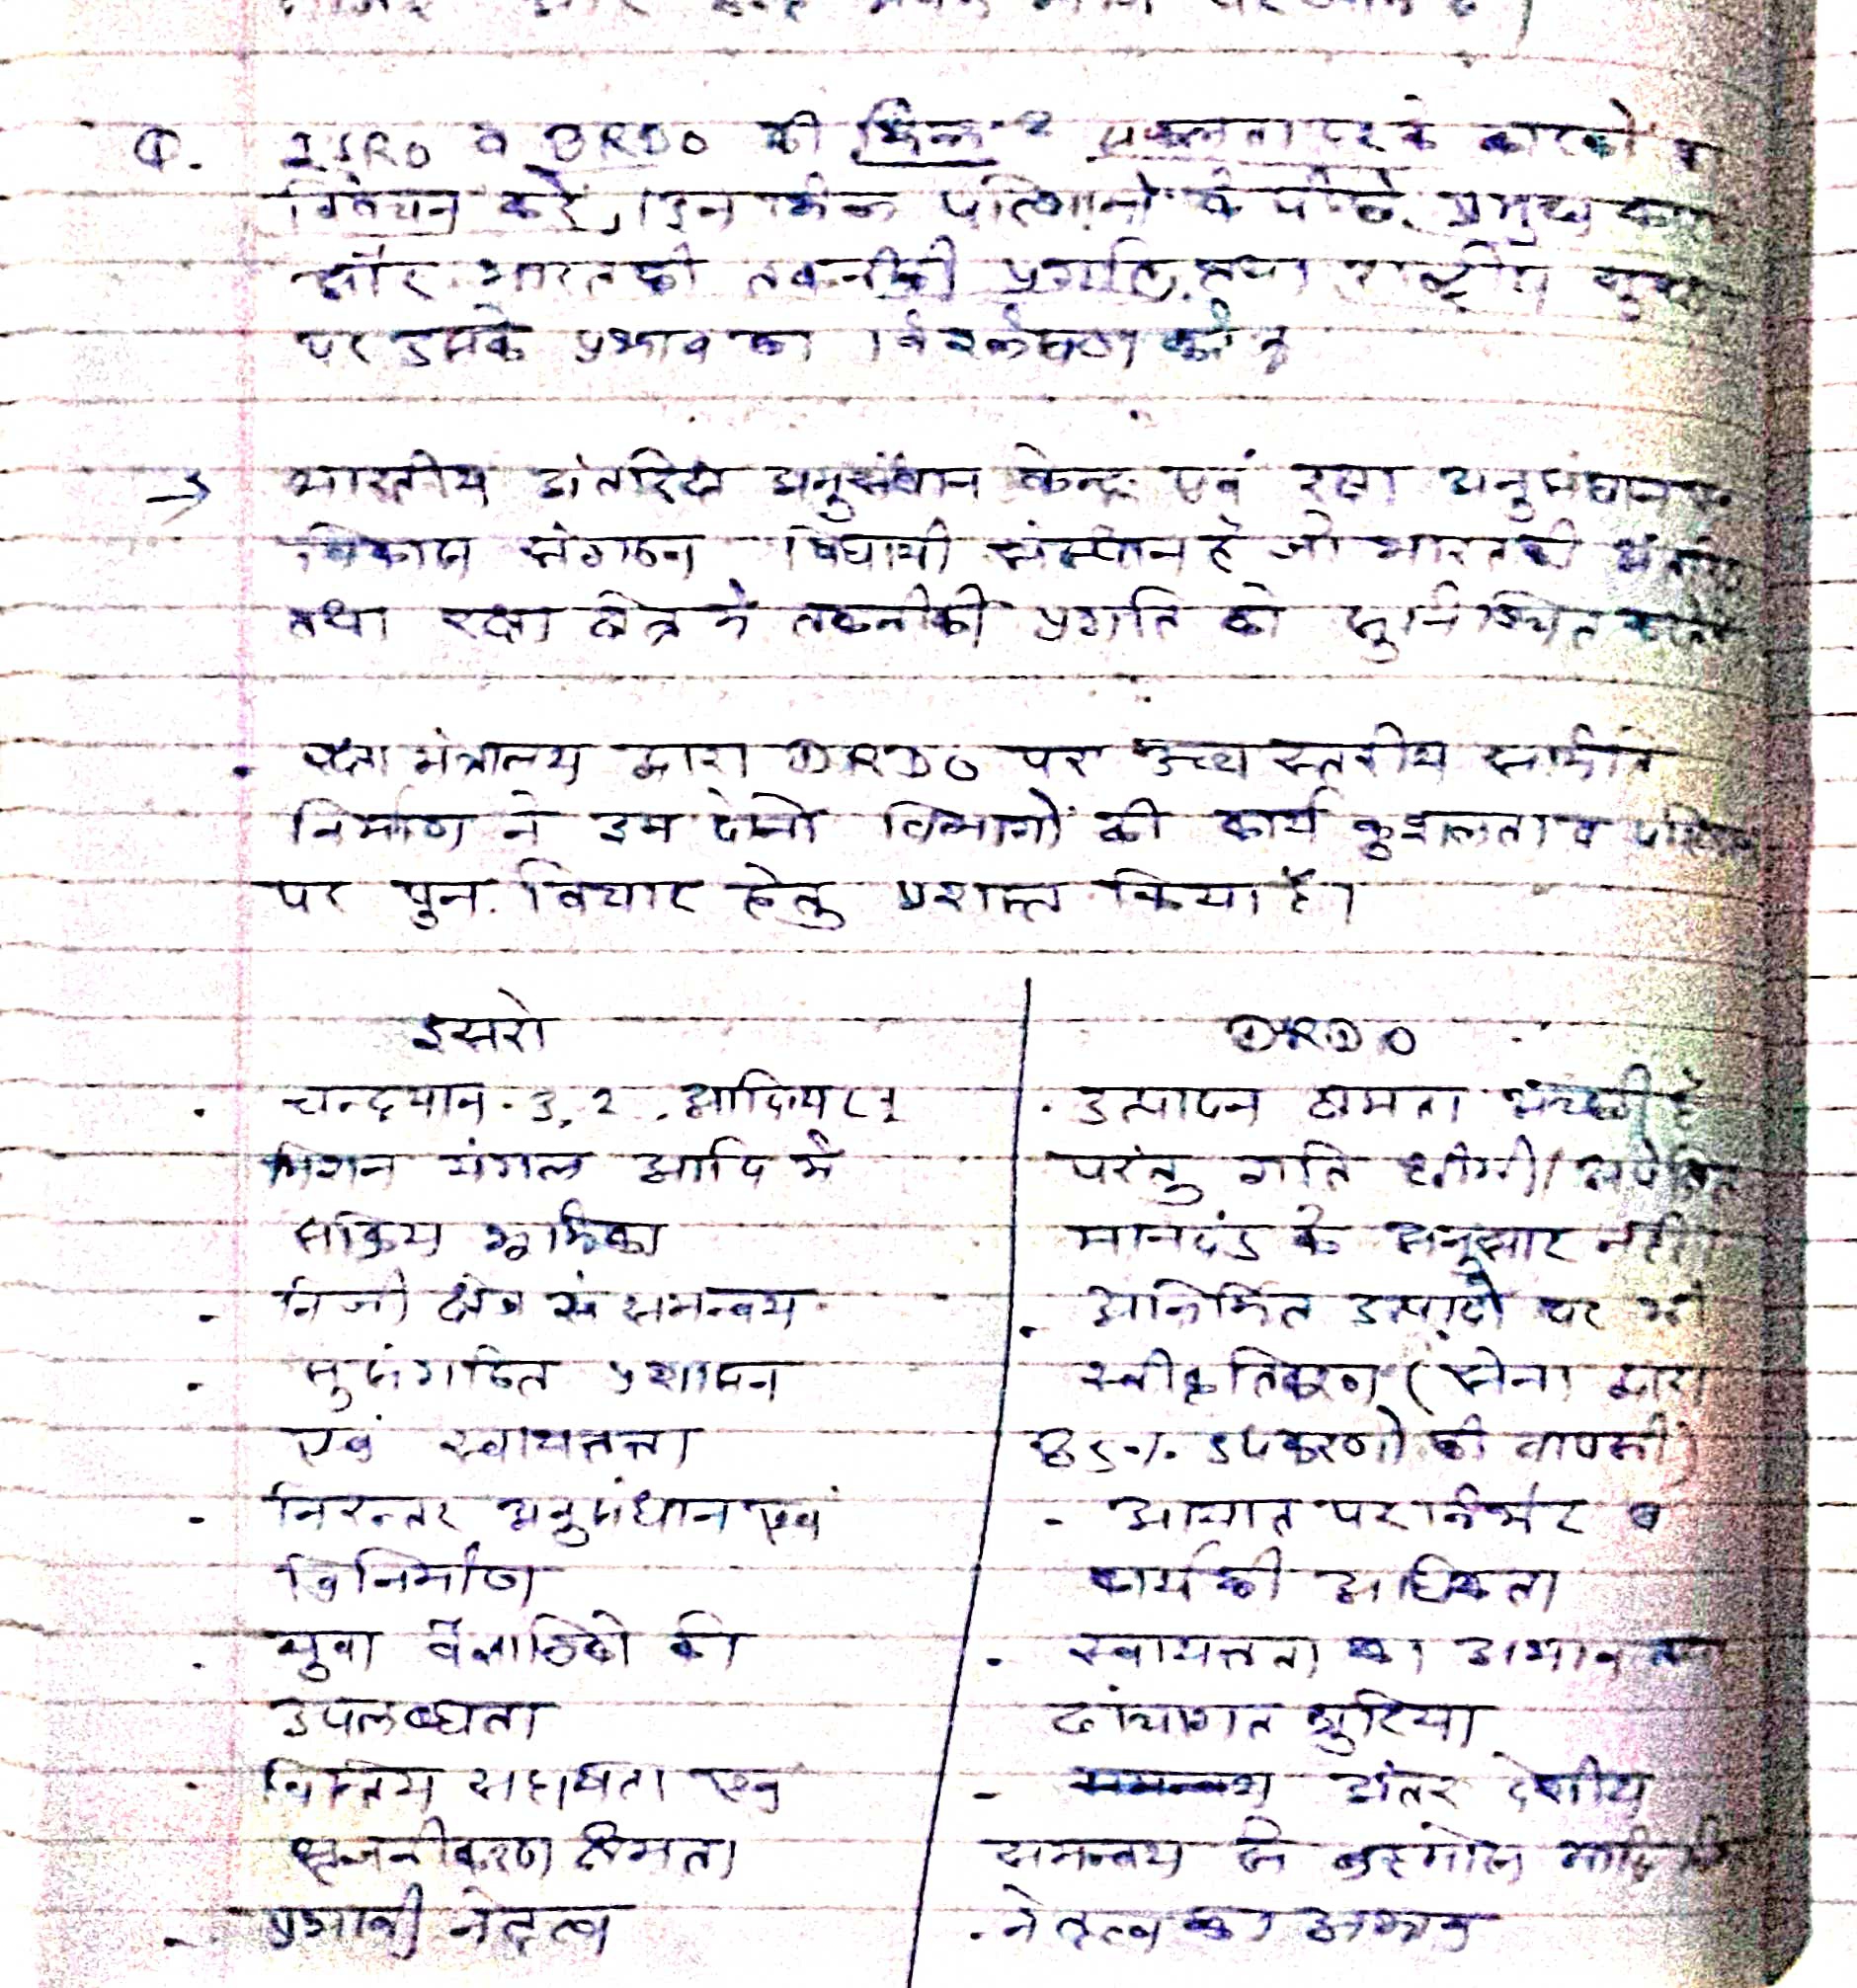 Q. ISRO व DRDO की भिन्न २ सफलता दर के कारको
विवेचन करे, इन भिन्न परिणामो के पीछे प्रमुख
और भारत की तकनीकी प्रगति तथा राष्ट्रीय
पर इसके प्रभाव का विश्लेषण करे।
→ भारतीय अंतरिक्ष अनुसंधान केन्द्र एवं रक्षा अनुसंधान
विकास संगठन संस्थान है जो भारत की
तथा रक्षा क्षेत्र मे तकनीकी प्रगति को सुनिश्चित
. रक्षा मंत्रालय द्वारा DRDO पर उच्च स्तरीय समिति
निर्माण ने इन दोनो विभागों की कार्य कुशलता व
पर पुन. विचार हेतु प्रशस्त किया है।
इसरो
DRDO
. चन्द्रयान-3, 2, आदित्य L1
मिशन मंगल आदि मे
सक्रिय भूमिका
. निजी क्षेत्र से समन्वय
. सुसंगठित प्रशासन
एवं स्वायत्तता
. निरन्तर अनुसंधान एवं
विनिर्माण
. युवा वैज्ञानिको की
उपलब्धता
. वित्तिय सहायता एवं
सृजनीकरण क्षमता
. प्रभावी नेतृत्व
. उत्पादन क्षमता अच्छी है
परंतु गति धीमी/अपेक्षित
मानदंड के अनुसार नही
. अनिर्मित उत्पादो पर भी
स्वीकृतिकरण (सेना द्वारा
उपकरणो की वापसी)
- आयात पर निर्भर व
कार्य की अधिकता
. स्वायत्तता का अभाव
ढांचागत त्रुटिया
- अंतर देशीय
समन्वय
. नेतृत्व का अभाव